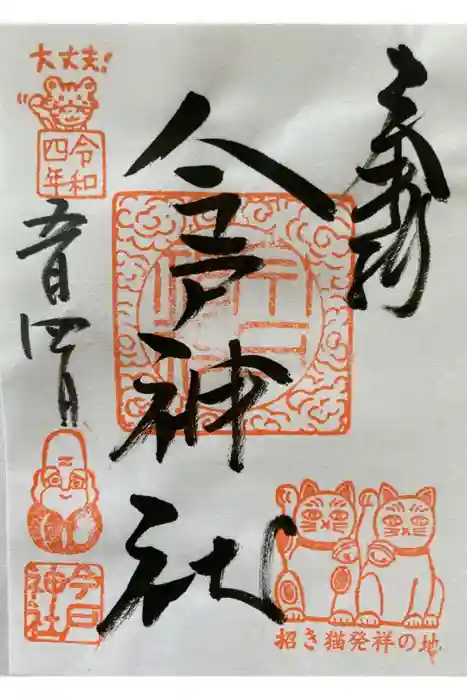 奉拝
今戸神社
大丈夫!
令和
四年
五月
四日
今戸
神社
招き猫発祥の地